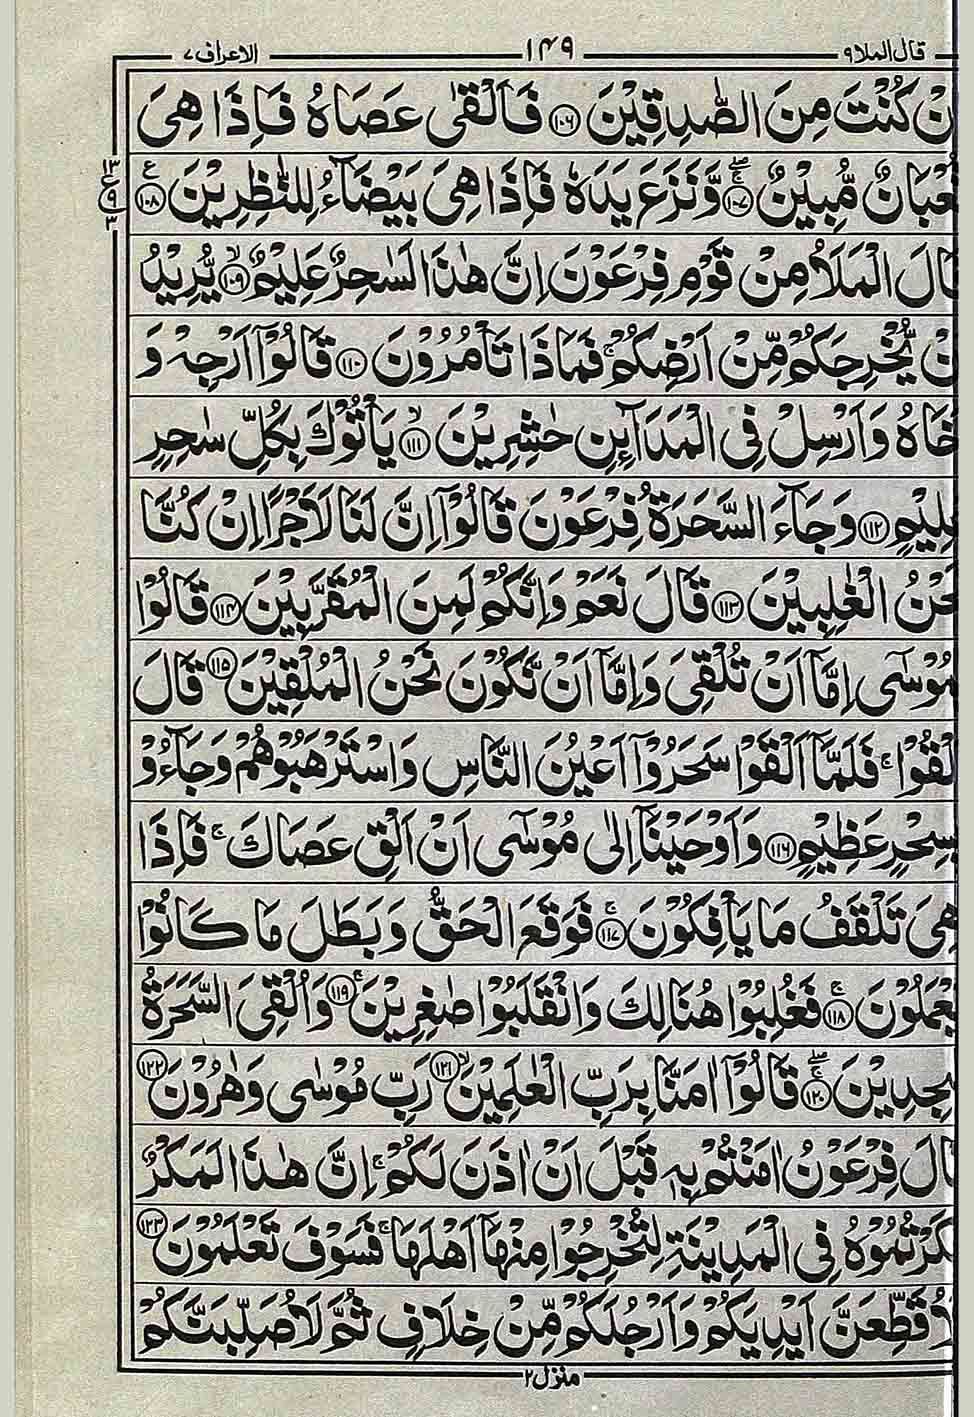 قال الملا ٩ ١٤٩ الاعراف ٧
نْ كُنْتَ مِنَ الصّٰدِقِيْنَ ﴿١٠٦﴾ فَاَلْقٰى عَصَاهُ فَاِذَا هِىَ
عْبَانٌ مُّبِيْنٌ ﴿١٠٧﴾ وَّنَزَعَ يَدَهٗ فَاِذَا هِىَ بَيْضَآءُ لِلنّٰظِرِيْنَ ﴿١٠٨﴾
١٣ ع ٩ ٣
الَ الْمَلَاُ مِنْ قَوْمِ فِرْعَوْنَ اِنَّ هٰذَا لَسٰحِرٌ عَلِيْمٌ ﴿١٠٩﴾ يُّرِيْدُ
نْ يُّخْرِجَكُمْ مِّنْ اَرْضِكُمْ ۚ فَمَاذَا تَاْمُرُوْنَ ﴿١١٠﴾ قَالُوْٓا اَرْجِهْ وَ
خَاهُ وَاَرْسِلْ فِى الْمَدَآئِنِ حٰشِرِيْنَ ﴿١١١﴾ يَاْتُوْكَ بِكُلِّ سٰحِرٍ
لِيْمٍ ﴿١١٢﴾ وَجَآءَ السَّحَرَةُ فِرْعَوْنَ قَالُوْٓا اِنَّ لَنَا لَاَجْرًا اِنْ كُنَّا
حْنُ الْغٰلِبِيْنَ ﴿١١٣﴾ قَالَ نَعَمْ وَاِنَّكُمْ لَمِنَ الْمُقَرَّبِيْنَ ﴿١١٤﴾ قَالُوْا
مُوْسٰٓى اِمَّآ اَنْ تُلْقِىَ وَاِمَّآ اَنْ نَّكُوْنَ نَحْنُ الْمُلْقِيْنَ ﴿١١٥﴾ قَالَ
لْقُوْا ۚ فَلَمَّآ اَلْقَوْا سَحَرُوْٓا اَعْيُنَ النَّاسِ وَاسْتَرْهَبُوْهُمْ وَجَآءُوْ
بِسِحْرٍ عَظِيْمٍ ﴿١١٦﴾ وَاَوْحَيْنَآ اِلٰى مُوْسٰٓى اَنْ اَلْقِ عَصَاكَ ۚ فَاِذَا
هِىَ تَلْقَفُ مَا يَاْفِكُوْنَ ﴿١١٧﴾ فَوَقَعَ الْحَقُّ وَبَطَلَ مَا كَانُوْا
عْمَلُوْنَ ﴿١١٨﴾ فَغُلِبُوْا هُنَالِكَ وَانْقَلَبُوْا صٰغِرِيْنَ ﴿١١٩﴾ وَاُلْقِىَ السَّحَرَةُ
جِدِيْنَ ﴿١٢٠﴾ قَالُوْٓا اٰمَنَّا بِرَبِّ الْعٰلَمِيْنَ ﴿١٢١﴾ رَبِّ مُوْسٰى وَهٰرُوْنَ ﴿١٢٢﴾
الَ فِرْعَوْنُ اٰمَنْتُمْ بِهٖ قَبْلَ اَنْ اٰذَنَ لَكُمْ ۚ اِنَّ هٰذَا لَمَكْرٌ
كَرْتُمُوْهُ فِى الْمَدِيْنَةِ لِتُخْرِجُوْا مِنْهَآ اَهْلَهَا ۚ فَسَوْفَ تَعْلَمُوْنَ ﴿١٢٣﴾
لَاُقَطِّعَنَّ اَيْدِيَكُمْ وَاَرْجُلَكُمْ مِّنْ خِلَافٍ ثُمَّ لَاُصَلِّبَنَّكُمْ
منزل ٢